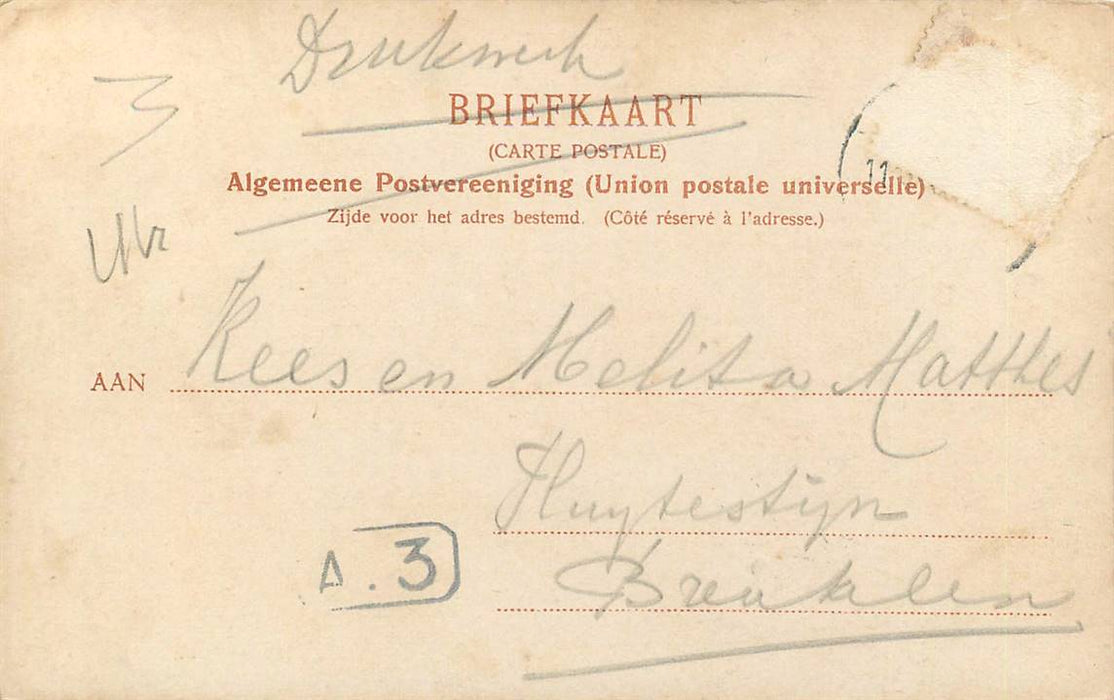 Drukwerk
BRIEFKAART
(CARTE POSTALE)
Algemeene Postvereeniging (Union postale universelle)
Zijde voor het adres bestemd. (Côté réservé à l'adresse.)
11
AAN Kees en Melita Matthes
Breukelen
A. 3